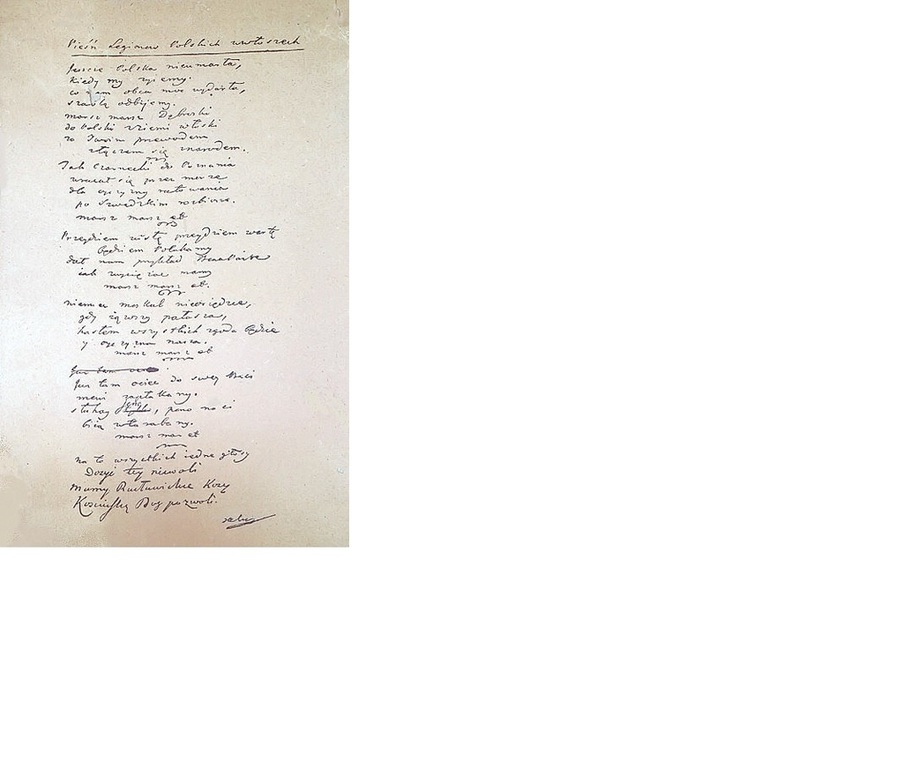 Pieśń Legionów Polskich we włoszech
Jeszcze Polska nieumarła,
kiedy my żyiemy.
co nam obca moc wydarła,
szablą odbijemy.
marsz marsz Dąbroski
do Polski zziemi włoski
za Twoim przewodem
złączem się znarodem.
Jak Czarnecki do Poznania
wracał się przez morze
dla oyczyzny ratowania
po Szwedzkim rozbiorze.
marsz marsz etc
Przeydziem wisłę przeydziem wartę
będziem Polakamy
dał nam przykład Bonaparte
iak zwyciężać mamy
marsz marsz etc.
niemiec moskal nieosiędzie,
gdy iąwszy pałasza,
hasłem wszystkich zgoda będzie
y oyczyzna nasza.
marsz marsz etc
Już tam
Już tam ociec do swey Basi
mówi zapłakany.
słuchay ieno, pono nasi
biią w tarabany.
marsz mar etc
na to wszystkich iedne głosy
Dosyć tey niewoli
mamy Racławickie Kosy
Kościuszkę Bog pozwoli.